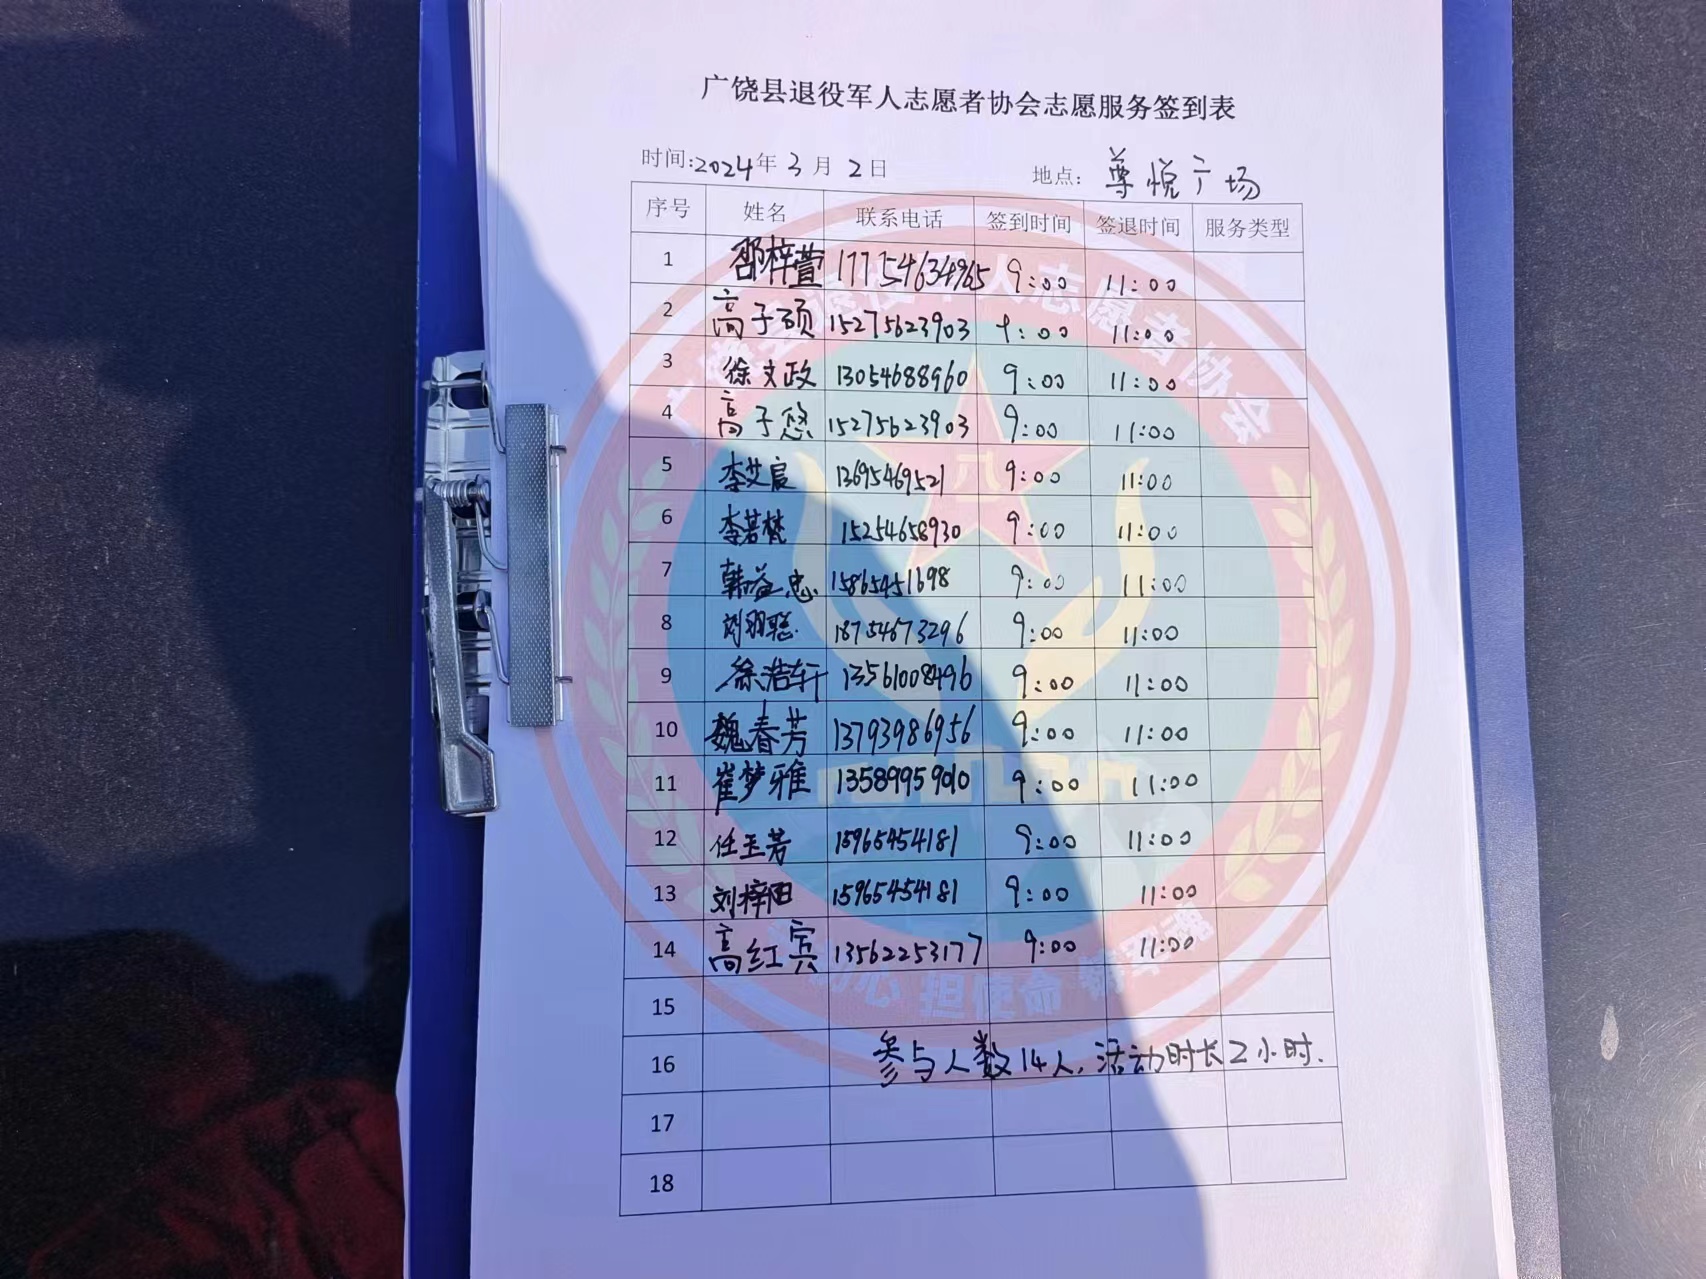 广饶县退役军人志愿者协会志愿服务签到表
时间:2024年3月2日 地点: 尊悦广场
序号 姓名 联系电话 签到时间 签退时间 服务类型
1 邵梓萱 17754634965 9:00 11:00
2 高子硕 15275623903 9:00 11:00
3 徐文政 13054688960 9:00 11:00
4 高子悠 15275623903 9:00 11:00
5 李艾宸 13695469521 9:00 11:00
6 李若梵 15254658930 9:00 11:00
7 韩益忠 15865451698 9:00 11:00
8 刘羽聪 18754673296 9:00 11:00
9 徐浩轩 13561008496 9:00 11:00
10 魏春芳 13793986956 9:00 11:00
11 崔梦雅 13589959010 9:00 11:00
12 任玉芳 15965454181 9:00 11:00
13 刘梓阳 15965454181 9:00 11:00
14 高红宾 13562253177 9:00 11:00
15
16 参与人数14人,活动时长2小时.
17
18
退役军人志愿者协会
初心 担使命